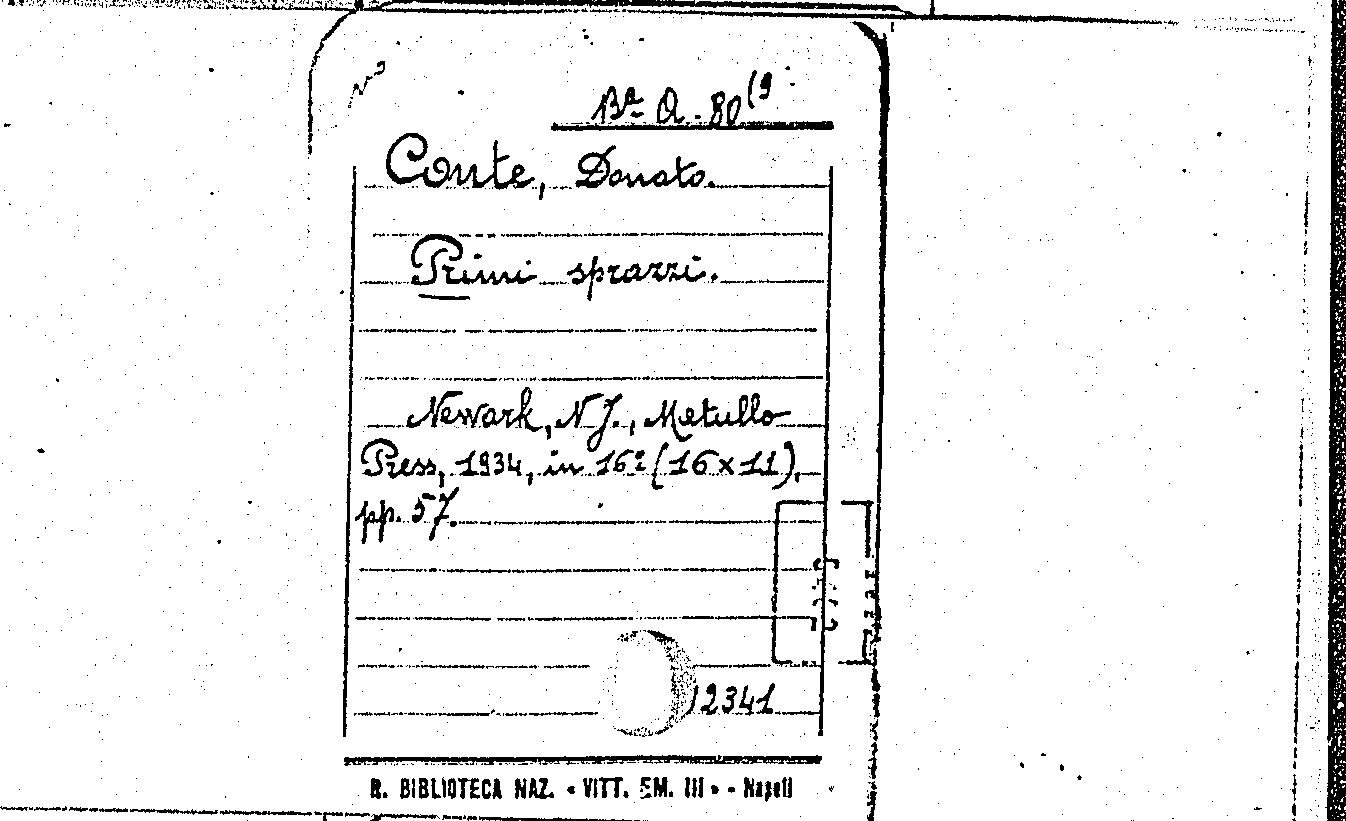 Bª Q. 80 (9
Conte, Donato.
Primi sprazzi.
Newark, N.J., Matullo
Press, 1934, in 16º (16x11),
pp. 57.
12341
R. BIBLIOTECA NAZ. « VITT. EM. III » - Napoli